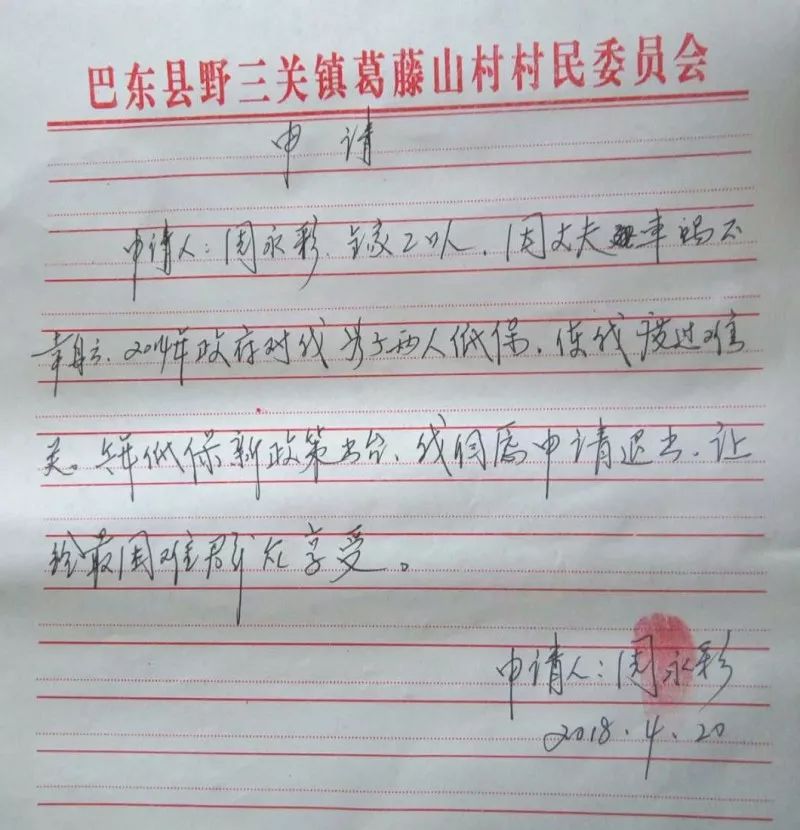 巴东县野三关镇葛藤山村村民委员会
申请
申请人：周永彩、全家2口人，因丈夫车祸不
幸身亡、2014年政府对我给予两人低保，使我渡过难
关。今年低保新政策出台，我自愿申请退出，让
给最困难群众享受。
申请人：周永彩
2018.4.20